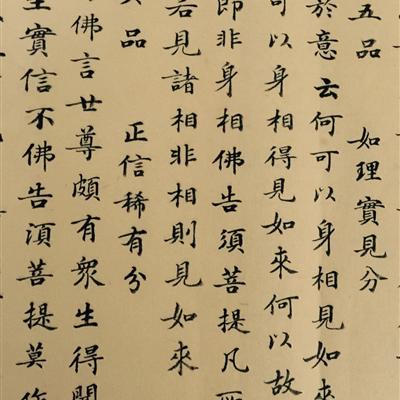 五品　如理實見分
於意云何可以身相見如來
可以身相得見如來何以故
即非身相佛告須菩提凡所
若見諸相非相則見如來
品　正信稀有分
佛言世尊頗有衆生得聞
生實信不佛告湏菩提莫作